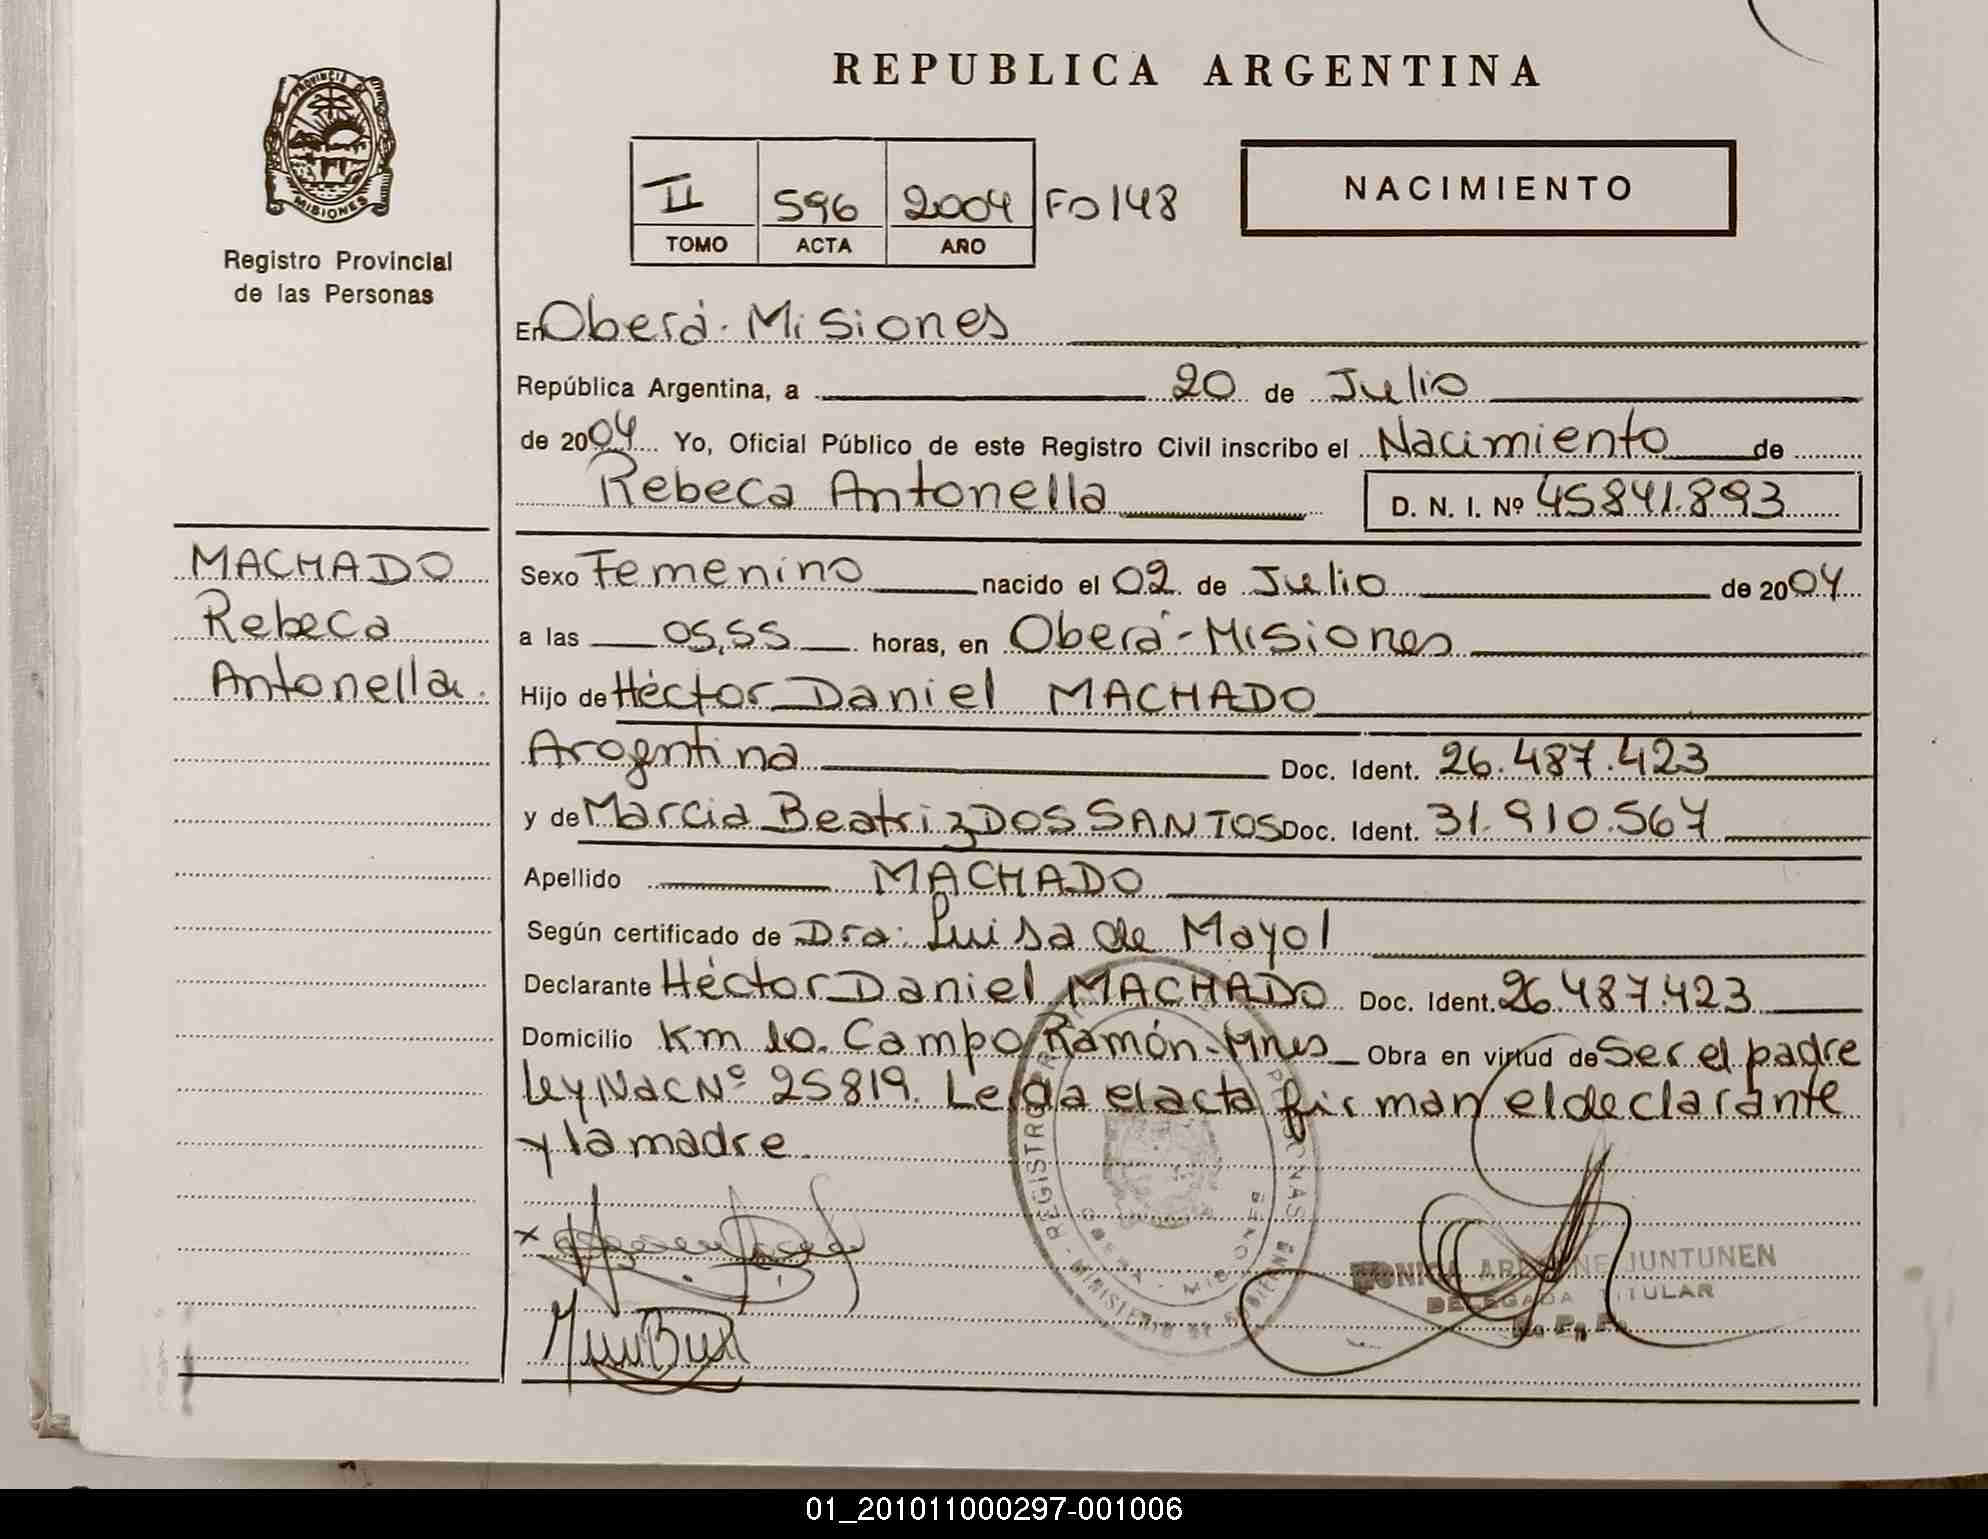 REPUBLICA ARGENTINA
PROVINCIA DE
MISIONES
Registro Provincial
de las Personas
II 596 2004 Fo 148
TOMO ACTA AÑO
NACIMIENTO
En Oberá - Misiones
República Argentina, a 20 de Julio
de 2004 Yo, Oficial Público de este Registro Civil inscribo el Nacimiento de
Rebeca Antonella D. N. I. Nº 45841.893
MACHADO
Rebeca
Antonella.
Sexo Femenino nacido el 02 de Julio de 2004
a las 05,55 horas, en Oberá - Misiones
Hijo de Héctor Daniel MACHADO
Argentina Doc. Ident. 26.487.423
y de Marcia Beatriz DOS SANTOS Doc. Ident. 31.910.567
Apellido MACHADO
Según certificado de Dra: Luisa de Mayol
Declarante Héctor Daniel MACHADO Doc. Ident. 26.487.423
Domicilio Km 10. Campo Ramón - Mnes Obra en virtud de Ser el padre
Ley Nac Nº 25819. Leída el acta firman el declarante
y la madre
MONICA JUNTUNEN
DELEGADA TITULAR
01_201011000297-001006